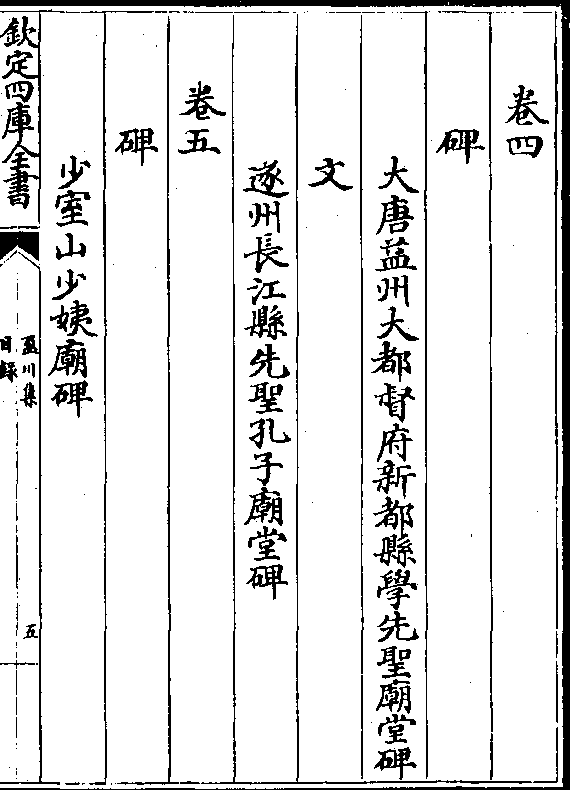 卷四
碑
大唐益州大都督府新都縣學先聖廟堂碑
文
遂州長江縣先聖孔子廟堂碑
卷五
碑
少室山少姨廟碑
欽定四庫全書
盈川集
目錄
五